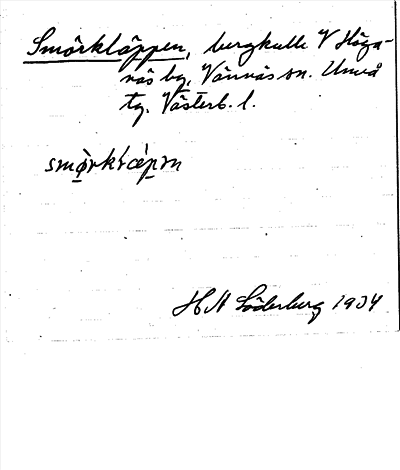 Smörkläppen, bergkulle V Höga-
näs by, Vännäs sn. Umeå
tg. Västerb. l.
smö̀rkĺæ̀pm
H N Söderberg 1934